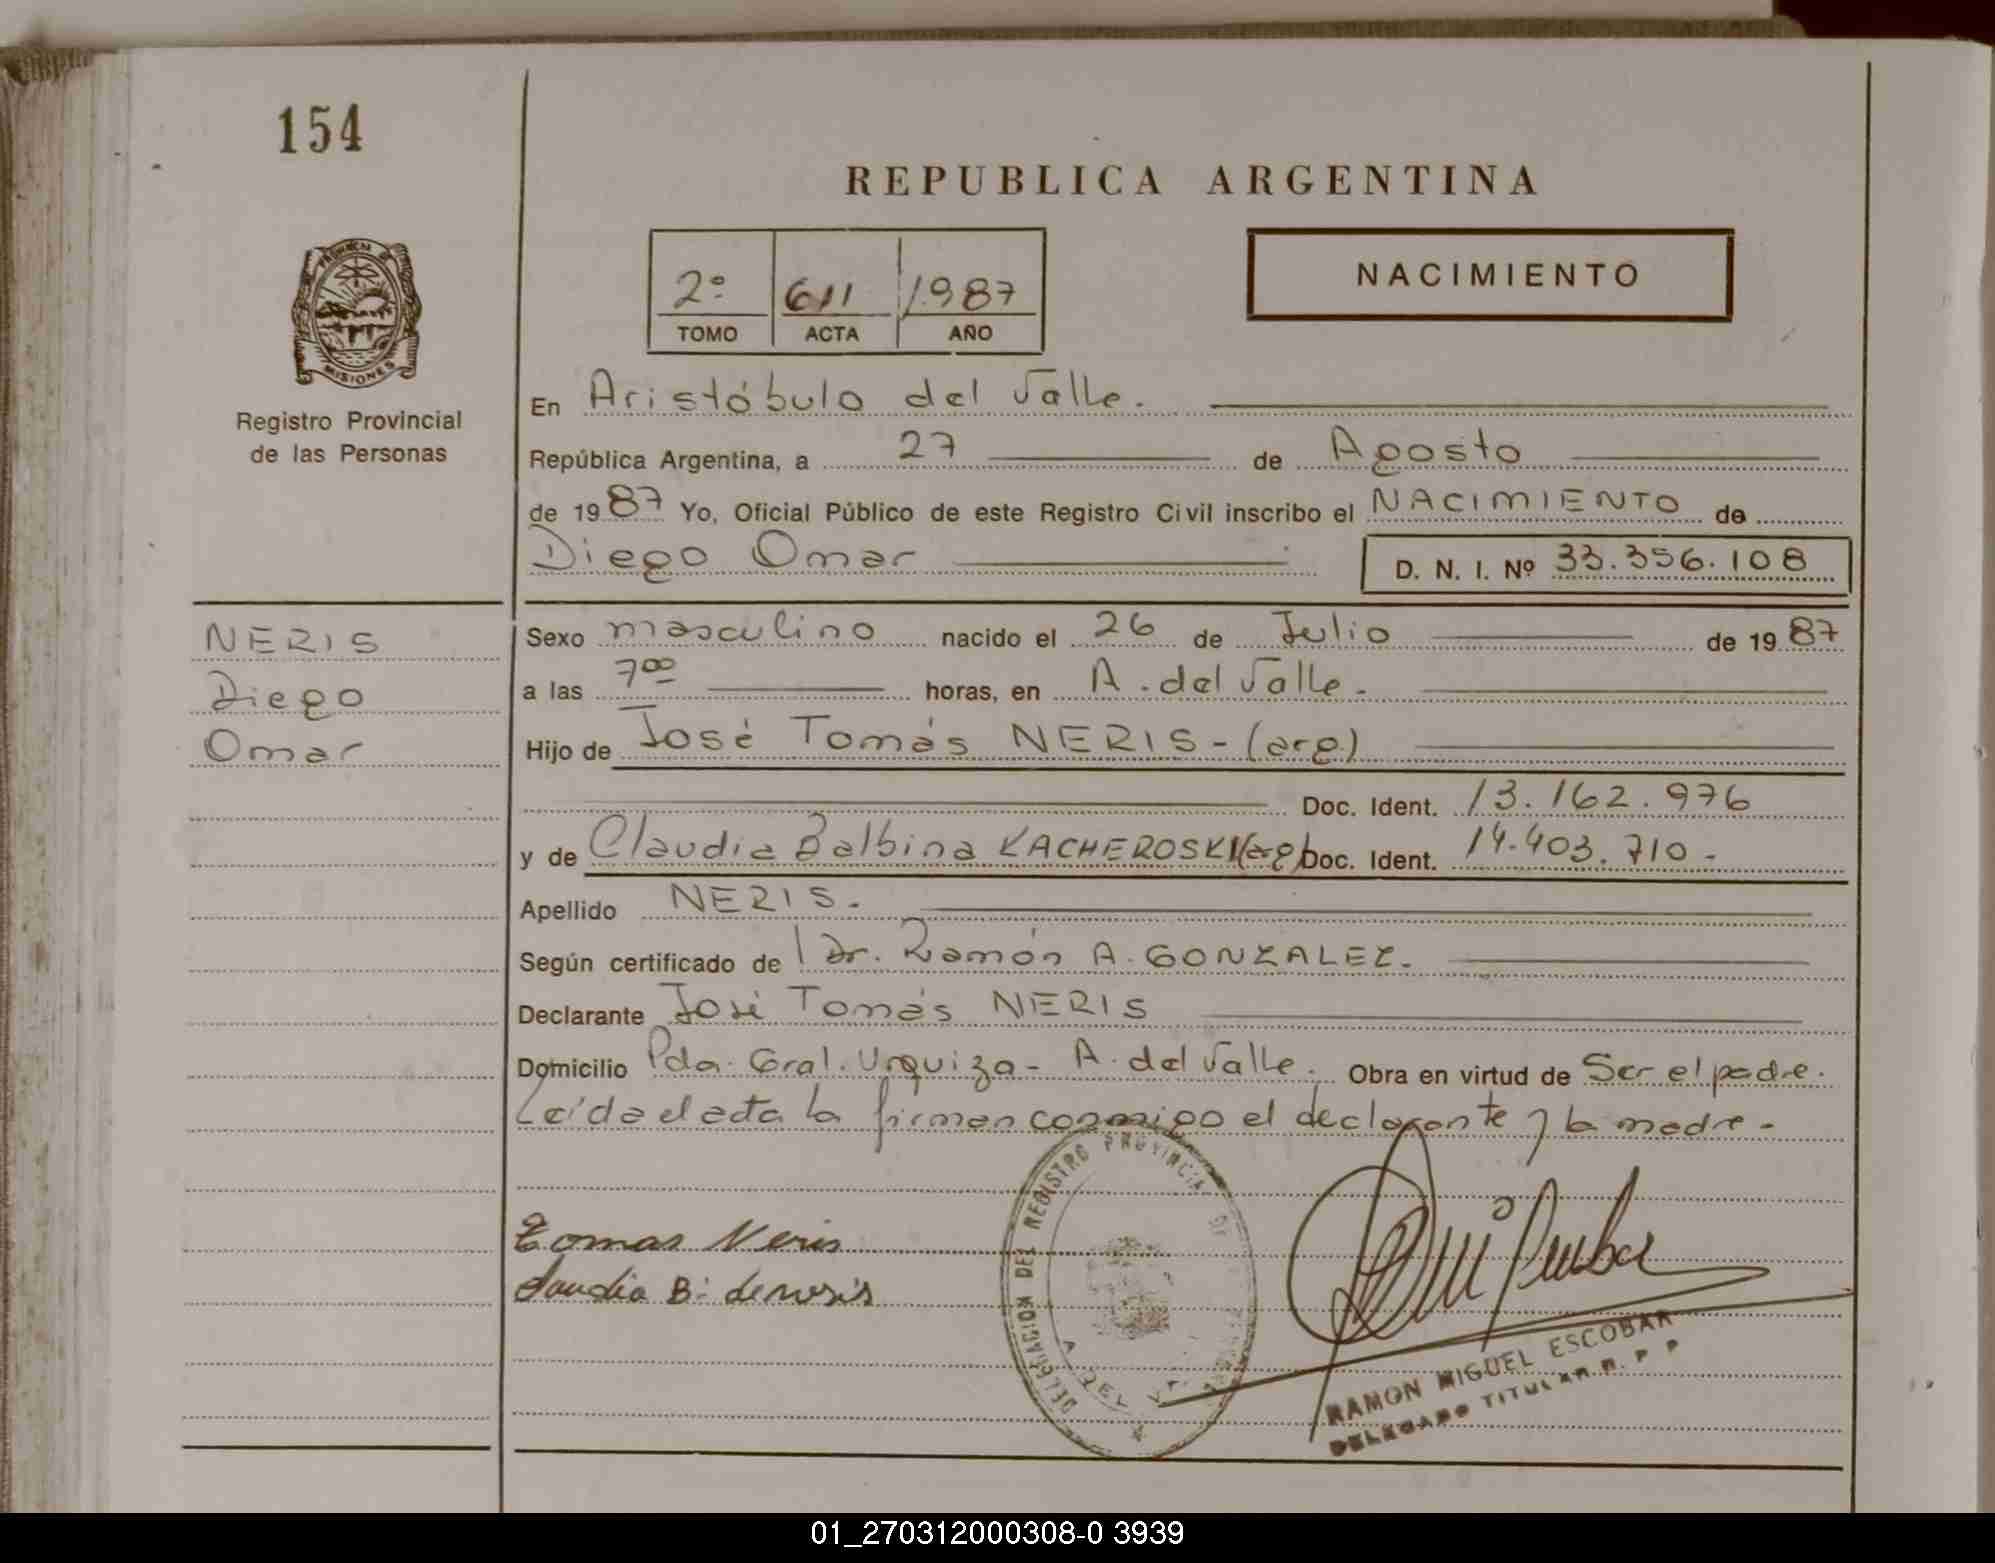 154
REPUBLICA ARGENTINA
PROVINCIA DE
MISIONES
Registro Provincial
de las Personas
2º 611 1987
TOMO ACTA AÑO
NACIMIENTO
En Aristóbulo del Valle.
República Argentina, a 27 de Agosto
de 1987 Yo, Oficial Público de este Registro Civil inscribo el NACIMIENTO de
Diego Omar D. N. I. Nº 33.356.108
NERIS
Diego
Omar
Sexo masculino nacido el 26 de Julio de 1987
a las 7⁰⁰ horas, en A. del Valle.
Hijo de José Tomás NERIS - (arg)
Doc. Ident. 13.162.976
y de Claudia Balbina KACHEROSKI (arg) Doc. Ident. 14.403.710 -
Apellido NERIS.
Según certificado de Dr. Ramón A. GONZALEZ.
Declarante José Tomás NERIS
Domicilio Pda. Gral. Urquiza - A. del Valle. Obra en virtud de Ser el padre.
Leída el acta la firman conmigo el declarante y la madre.
Tomas Neris
Claudia B. de neris
DELEGACION DEL REGISTRO PROVINCIAL DE
RAMON MIGUEL ESCOBAR
DELEGADO TITULAR R. P. P
01_270312000308-0 3939